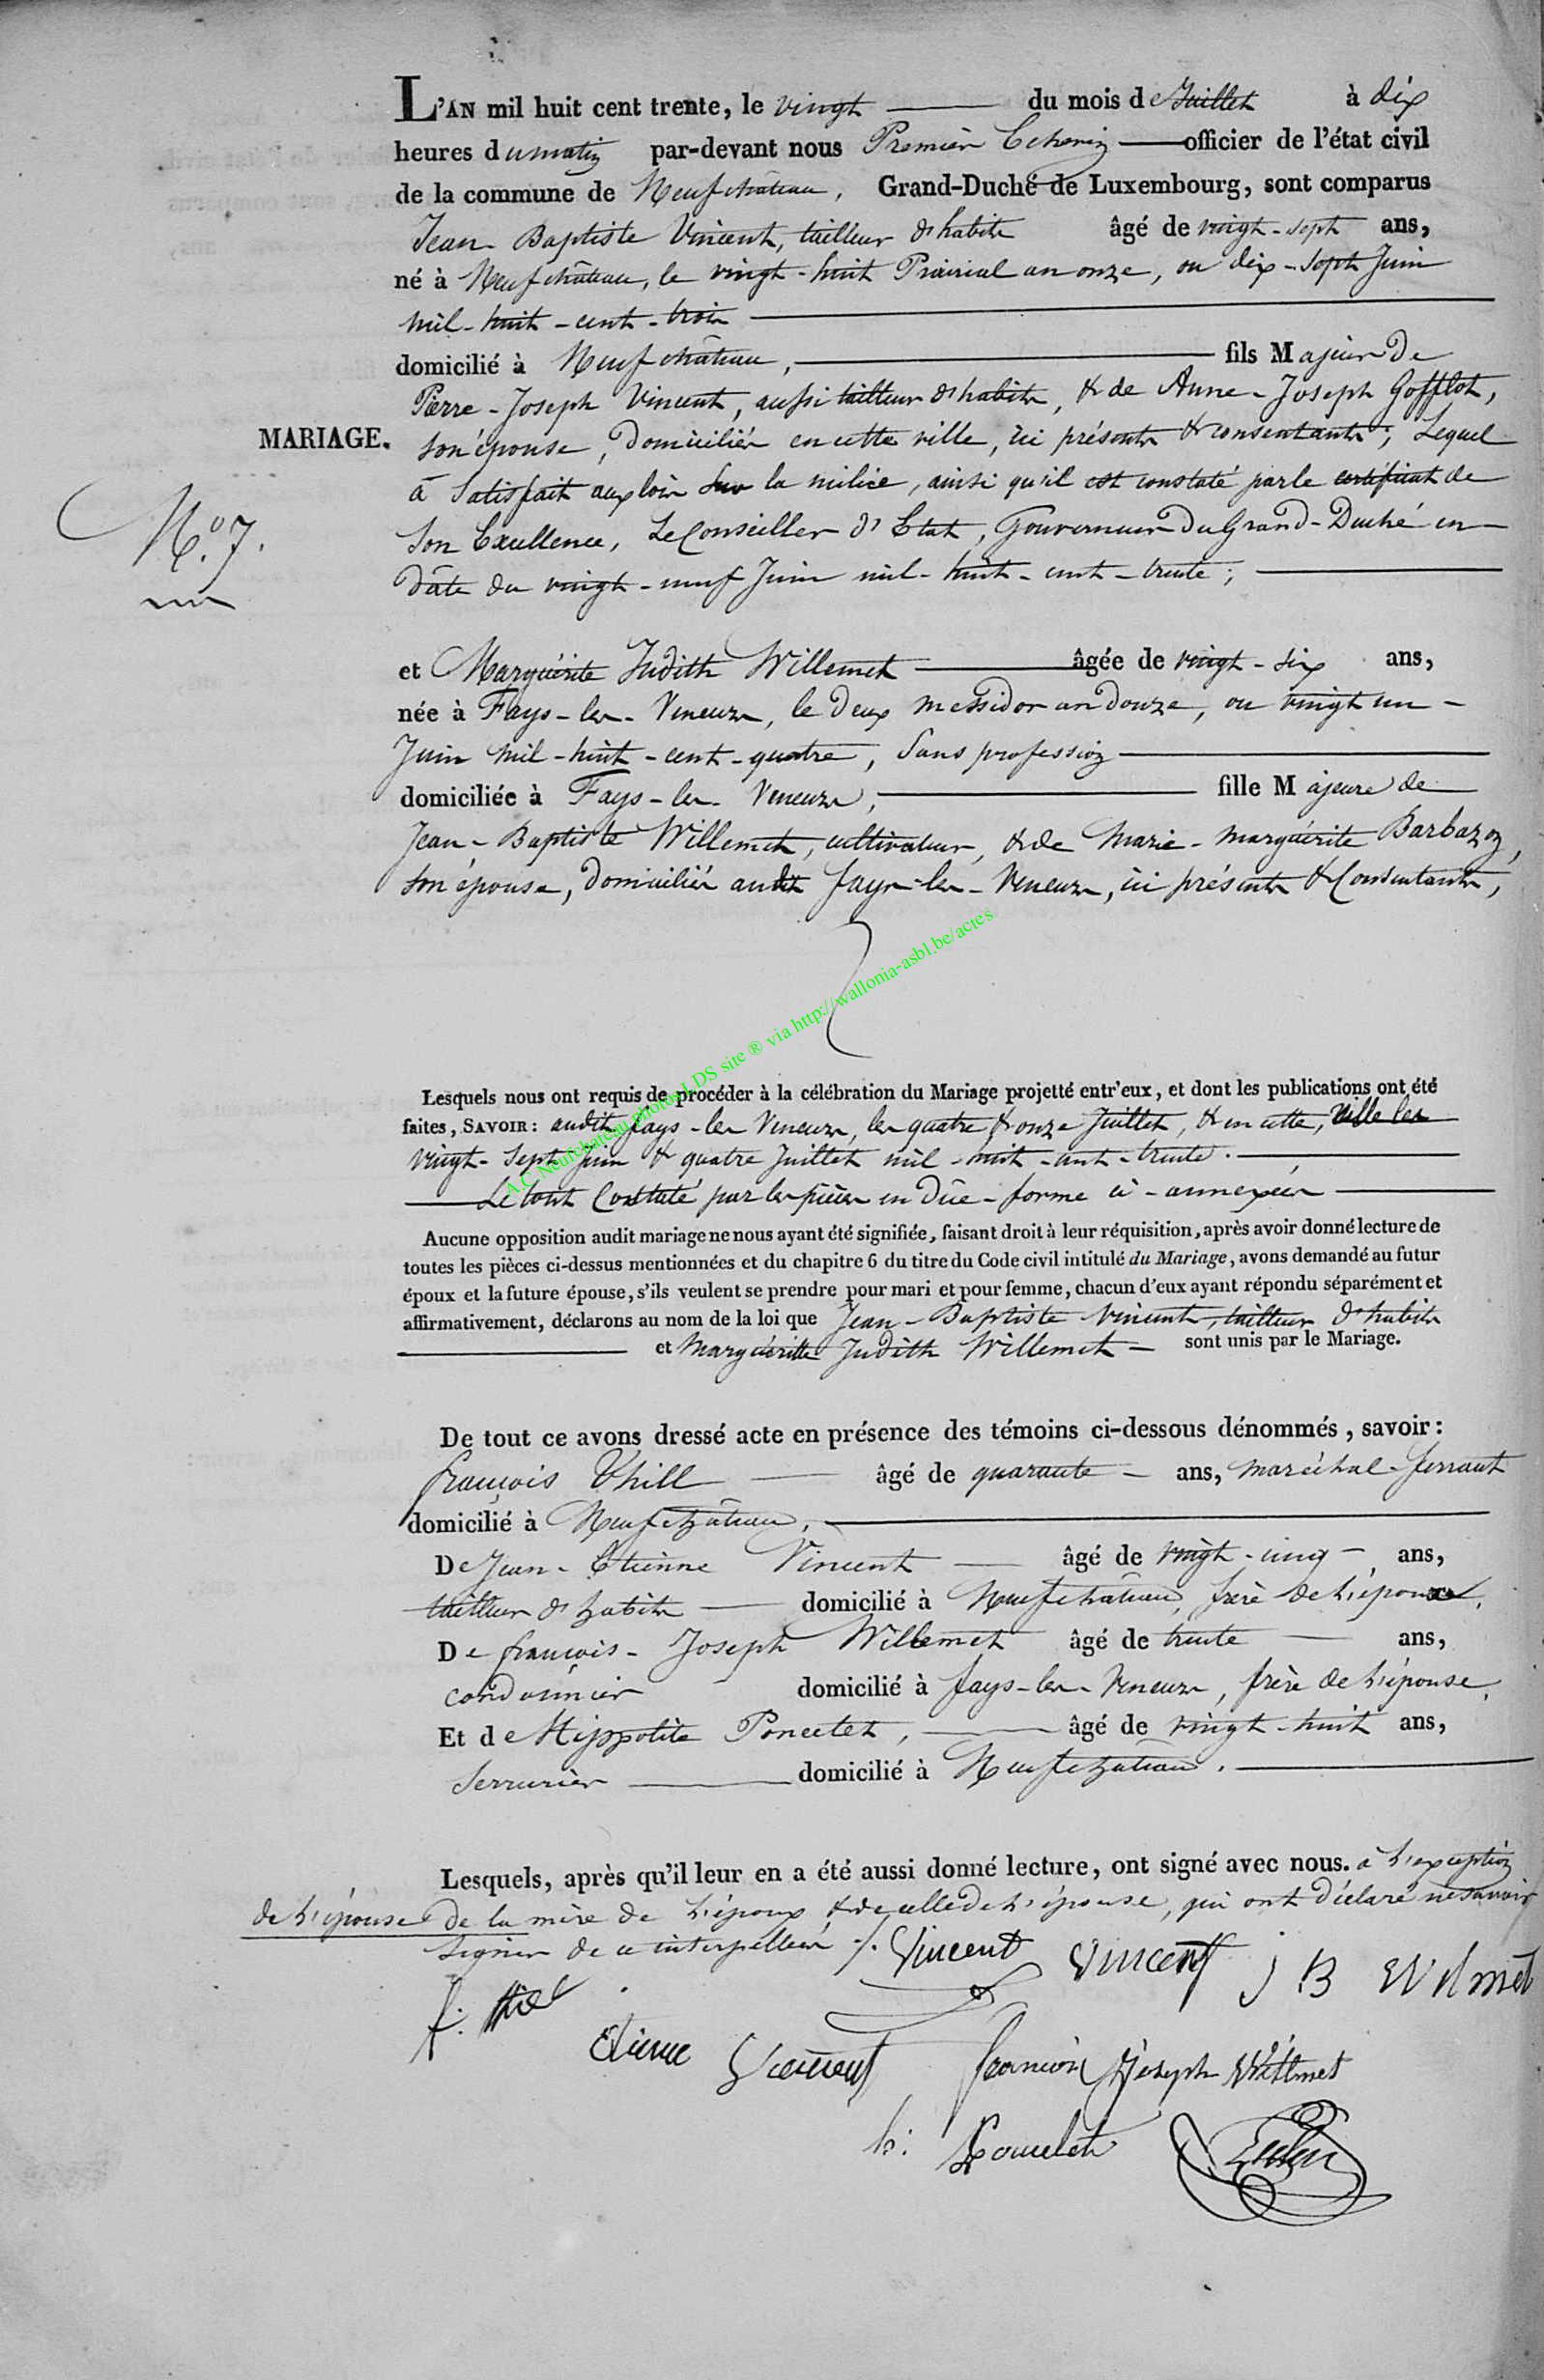 L'AN mil huit cent trente, le vingt du mois de Juillet à dix
heures du matin par-devant nous Premier Echevin officier de l'état civil
de la commune de Neufchâteau, Grand-Duché de Luxembourg, sont comparus
Jean-Baptiste Vincent, tailleur d'habits âgé de vingt-sept ans,
né à Neufchâteau, le vingt-huit Prairial an onze, ou dix-sept Juin
mil-huit-cent-trois
domicilié à Neufchâteau, fils Majeur de
Pierre-Joseph Vincent, aussi tailleur d'habits, & de Anne-Joseph Gofflot,
MARIAGE. son épouse, domiciliés en cette ville, ici présents & consentants; Lequel
à Satisfait aux lois sur la milice, ainsi qu'il est constaté par le certificat de
N.º 7. Son Excellence, Le Conseiller d'Etat, Gouverneur du Grand-Duché en
dâte du vingt-neuf Juin mil-huit-cent-trente;
et Marguérite Judith Willemet âgée de vingt-six ans,
née à Fays-les-Veneurs, le deux messidor an douze, ou vingt un
Juin mil-huit-cent-quatre, Sans profession
domiciliée à Fays-les-Veneurs, fille Majeure de
Jean-Baptiste Willemet, cultivateur, & de Marie-Marguérite Barbazon,
son épouse, domiciliés audit fays-les-Veneurs, ici présents & Consentants,
A.C.Neufchateau photos LDS site ® via http://wallonia-asbl.be/actes
Lesquels nous ont requis de procéder à la célébration du Mariage projetté entr'eux, et dont les publications ont été
faites, SAVOIR: audit fays-les Veneurs, les quatre & onze Juillet, & en cette, ville les
vingt-sept Juin & quatre Juillet mil-huit-cent-trente.
Le tout Constaté par les pièces en dûe-forme ci-annexées
Aucune opposition audit mariage ne nous ayant été signifiée, faisant droit à leur réquisition, après avoir donné lecture de
toutes les pièces ci-dessus mentionnées et du chapitre 6 du titre du Code civil intitulé du Mariage, avons demandé au futur
époux et la future épouse, s'ils veulent se prendre pour mari et pour femme, chacun d'eux ayant répondu séparément et
affirmativement, déclarons au nom de la loi que Jean-Baptiste Vincent, tailleur d'habits
et Marguéritte Judith Willemet sont unis par le Mariage.
De tout ce avons dressé acte en présence des témoins ci-dessous dénommés, savoir:
françois Thill âgé de quarante ans, maréchal-ferrant
domicilié à Neufchâteau,
De Jean-Etienne Vincent âgé de vingt-cinq ans,
tailleur d'habits domicilié à Neufchâteau, frère de l'époux.
De françois-Joseph Willemet âgé de trente ans,
cordonnier domicilié à fays-les-Veneurs, frère de l'épouse.
Et de Hippolite Poncelet, âgé de vingt-huit ans,
Serrurier domicilié à Neufchâteau.
Lesquels, après qu'il leur en a été aussi donné lecture, ont signé avec nous. à l'exception
de l'épouse de la mère de l'époux & de celle de l'épouse, qui ont déclaré ne savoir
signer de ce interpellées ./. Vincent Vincent J B Wilmet
f. Thill
Etienne Vincent francois Joseph Willmet
h: Poncelet